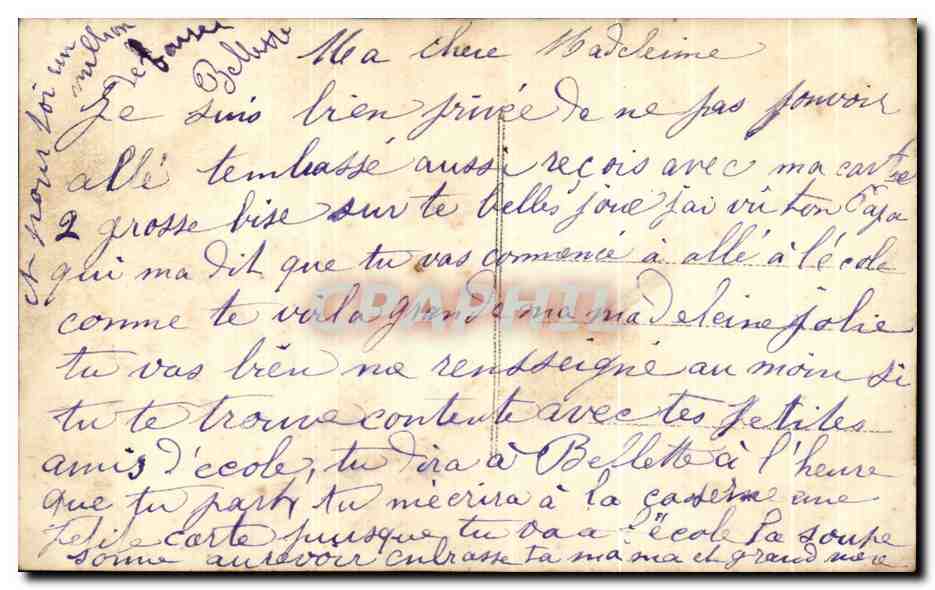 Ma chere Madeleime
Je suis bien privée de ne pas pouvoir
allé tembassé aussi reçois avec ma carte
2 grosse bise sur te belles joue j'ai vu ton Papa
qui ma dit que tu vas commencé à allé à l'école
comme te voila grande ma madeleine jolie
tu vas bien me rensseigné au moin si
tu te trouve contente avec tes petites
amis d'école, tu dira à Bellette à l'heure
que tu part, tu mécrira à la caserne une
petite carte puisque tu va a l'école la soupe
sonne aurevoir enbrasse ta mama et grand mère
et pour toi un
million
de baiser
Bellette
CPAPHIL